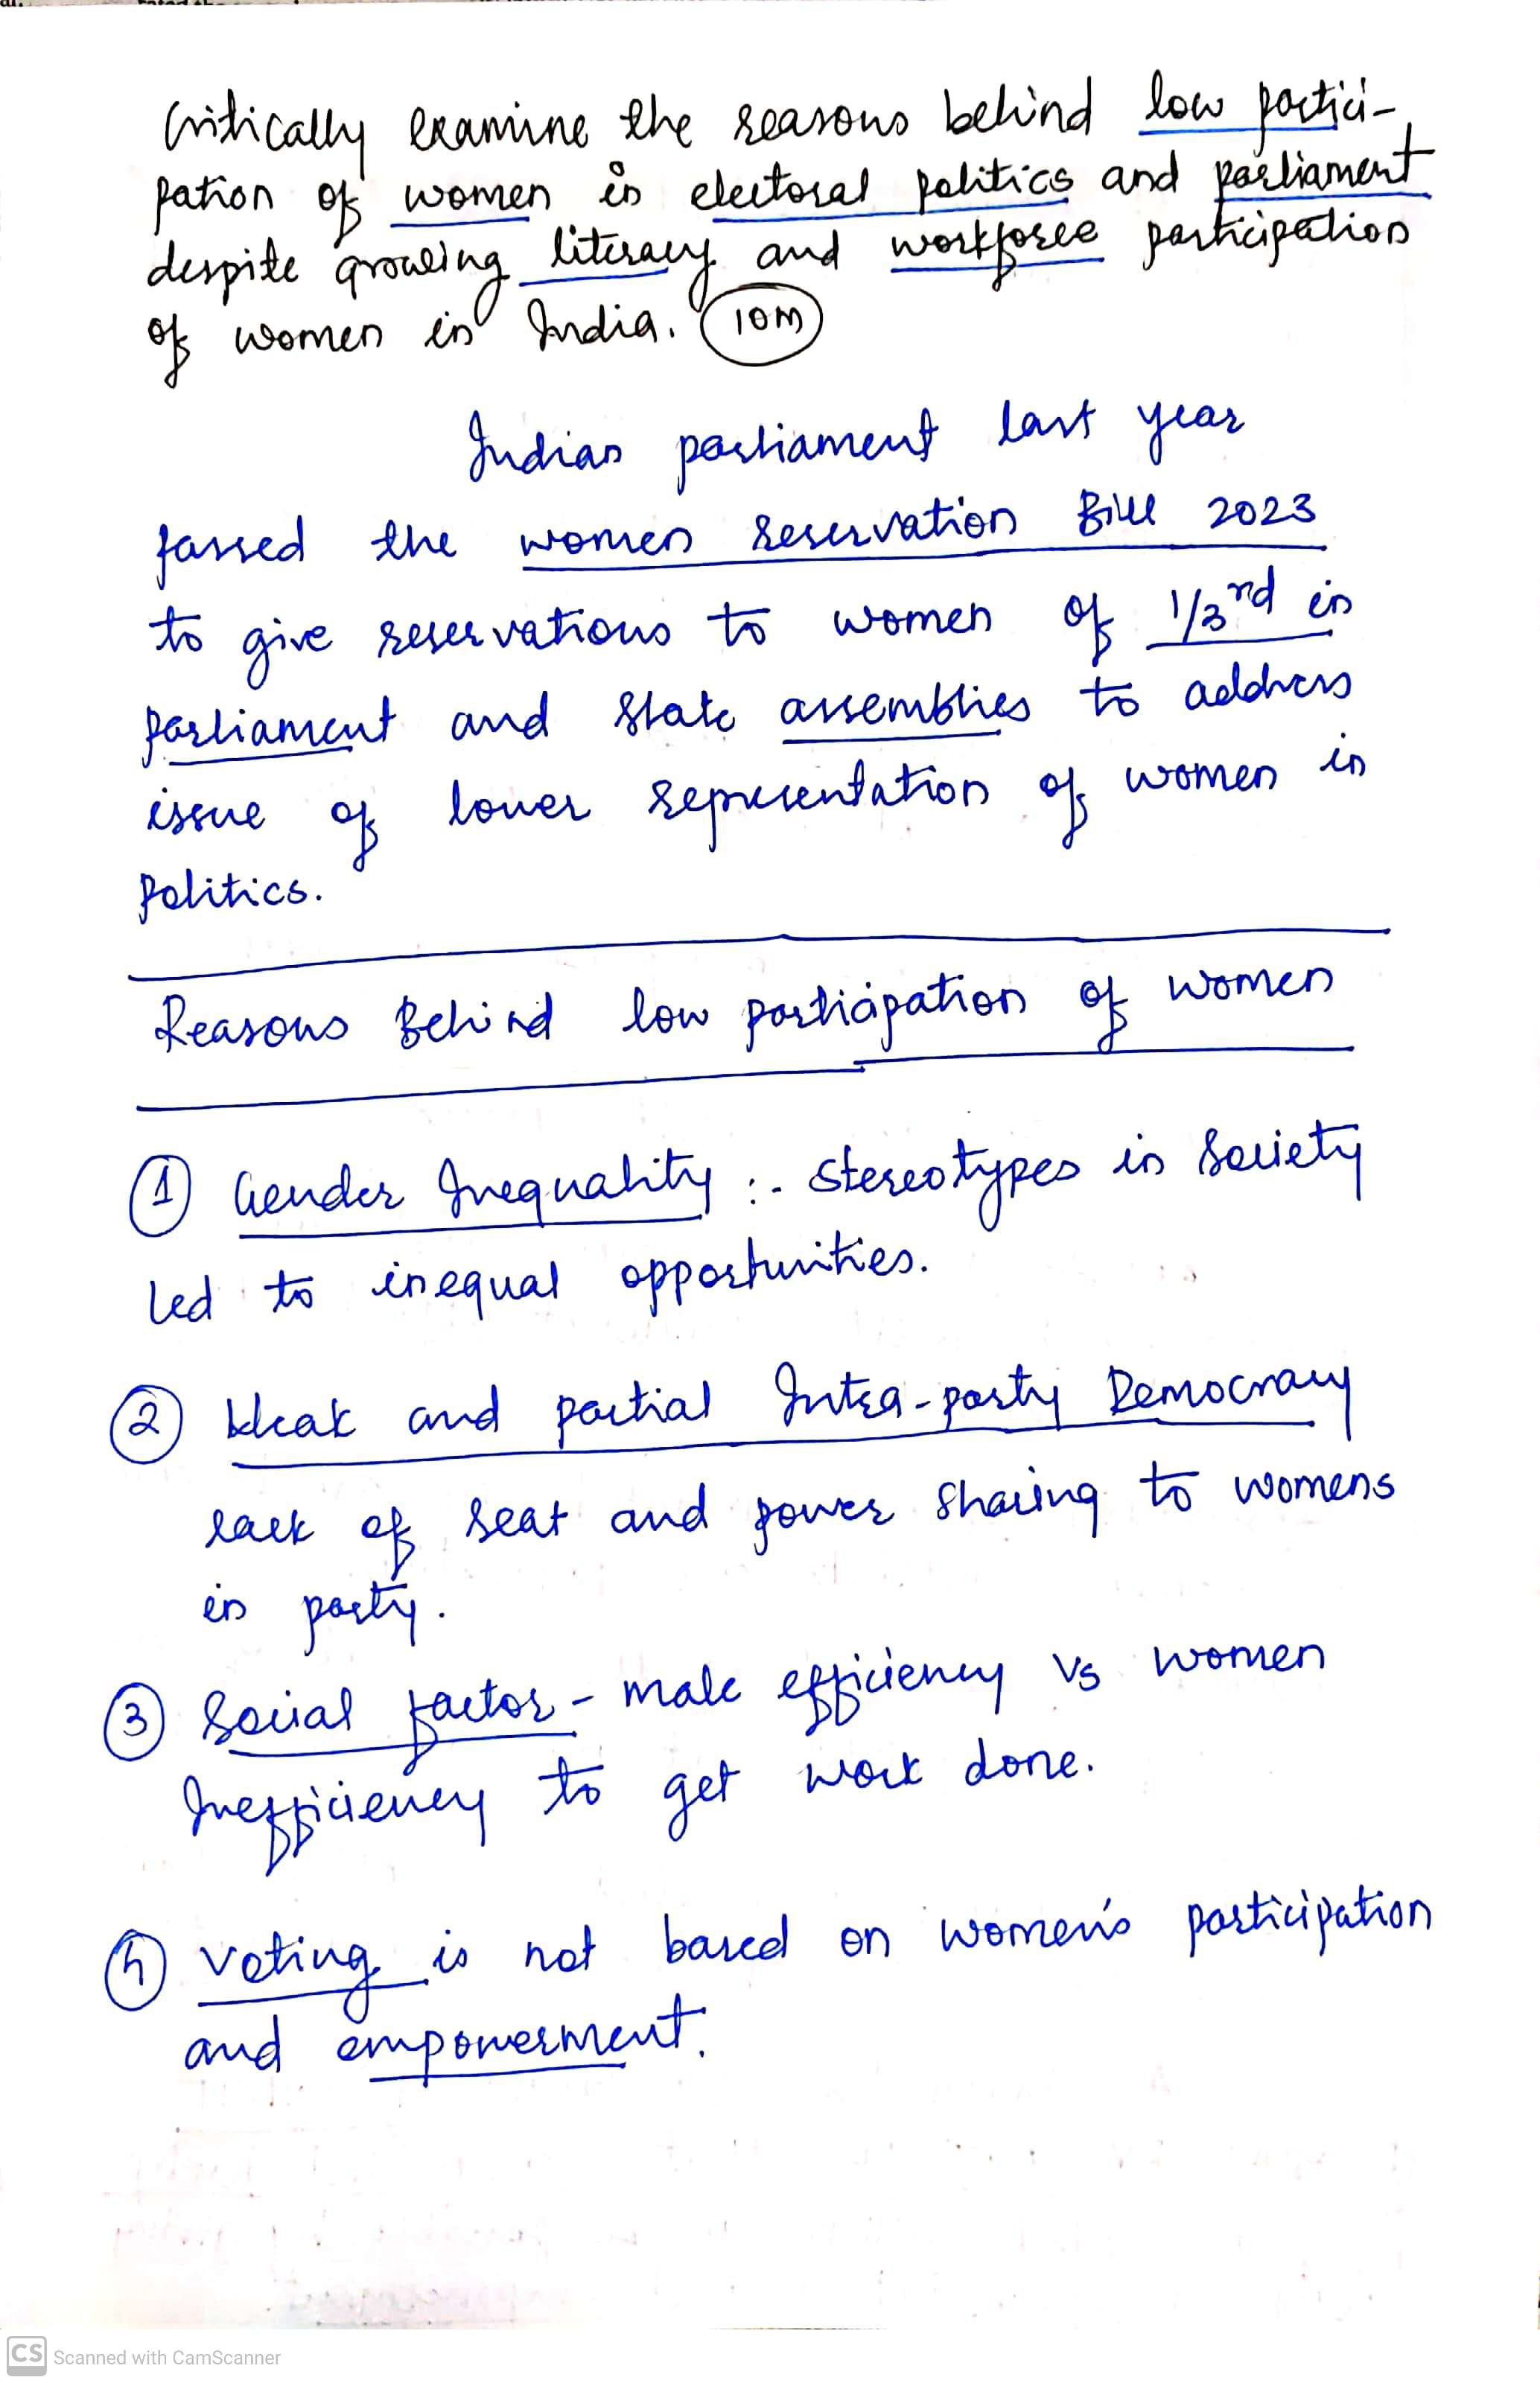 Critically examine the reasons behind low partici-
pation of women in electoral politics and parliament
despite growing literacy and workforce participation
of women in India. 10M
Indian parliament last year
passed the women reservation Bill 2023
to give reservations to women of 1/3rd in
parliament and state assemblies to address
issue of lower representation of women in
politics.
Reasons Behind low participation of women
1 Gender Inequality :- Stereotypes in Society
led to inequal opportunities.
2 Weak and partial Intra-party Democracy
lack of seat and power sharing to womens
in party.
3 Social factor - male efficiency vs women
Inefficiency to get work done.
4 Voting is not based on women's participation
and empowerment.
CS Scanned with CamScanner